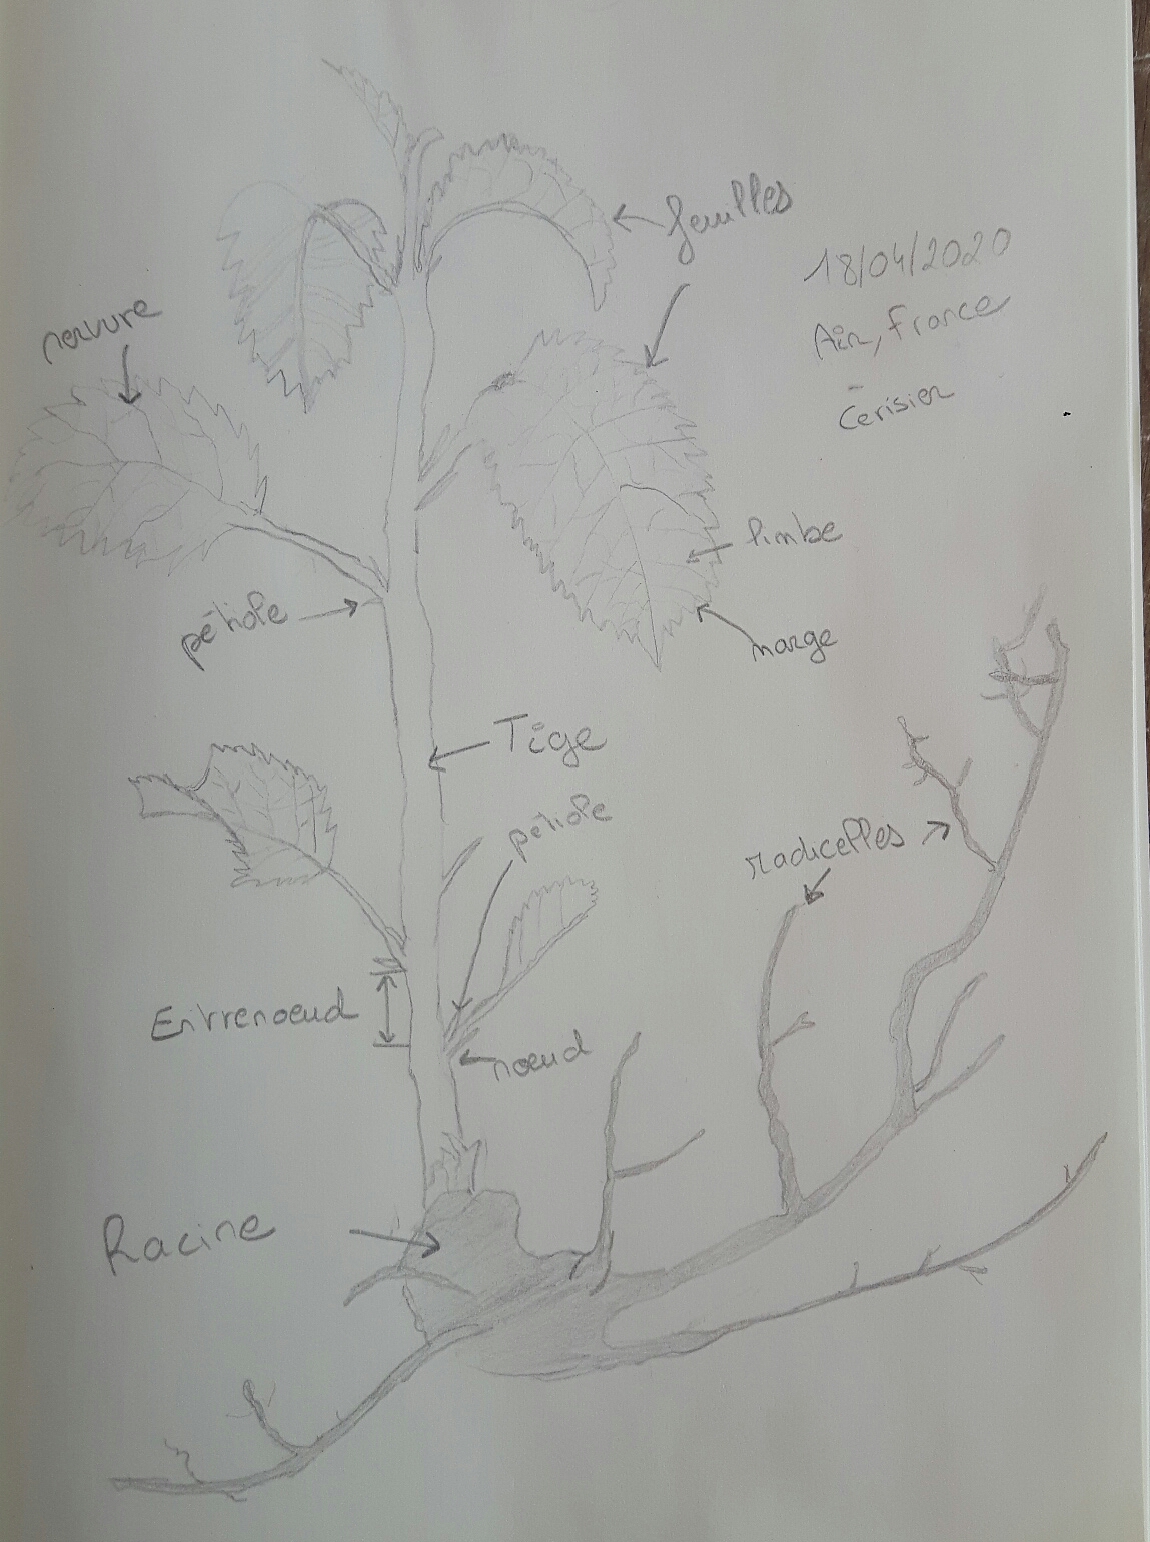 feuilles
18/04/2020
Ain, France
Cerisier
nervure
limbe
pétiole
marge
Tige
pétiole
radicelles
Entrenoeud
noeud
Racine